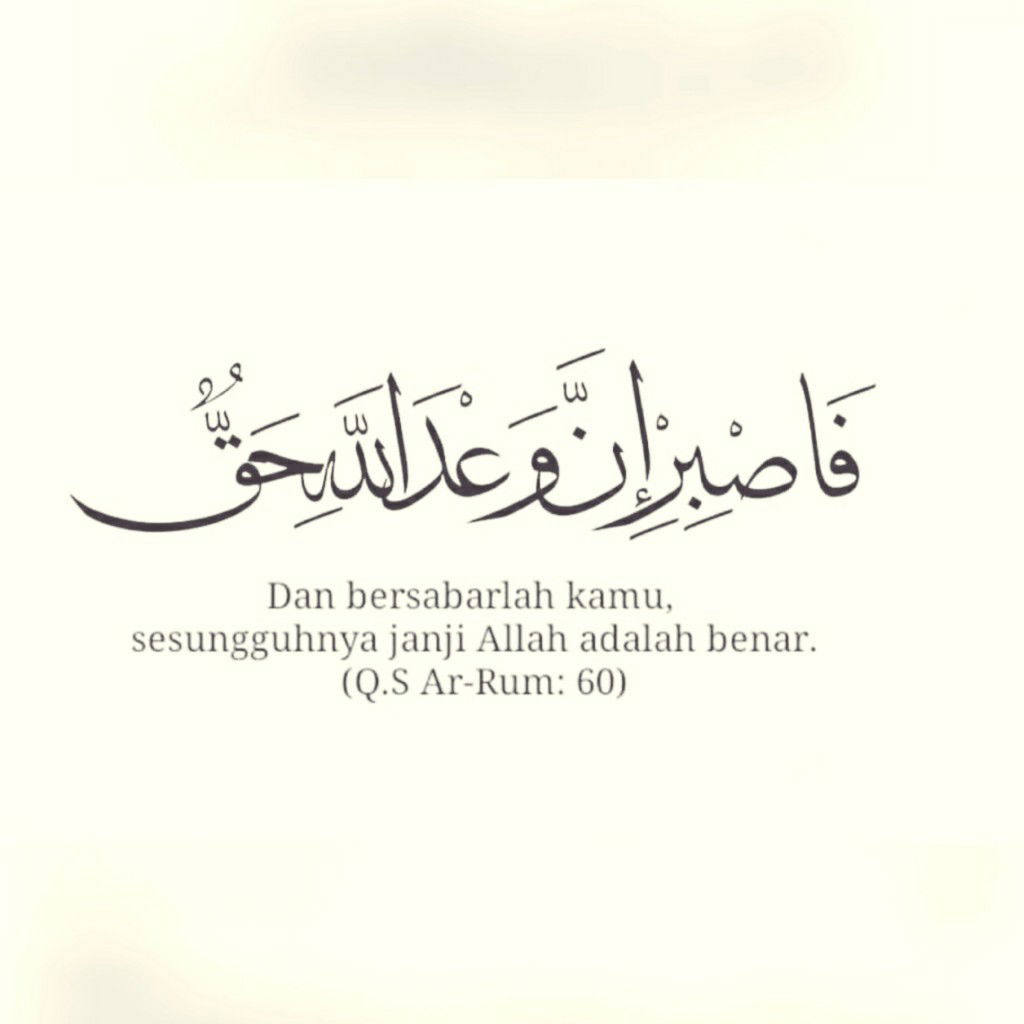 فَاصْبِرْ إِنَّ وَعْدَ اللَّهِ حَقٌّ
Dan bersabarlah kamu,
sesungguhnya janji Allah adalah benar.
(Q.S Ar-Rum: 60)